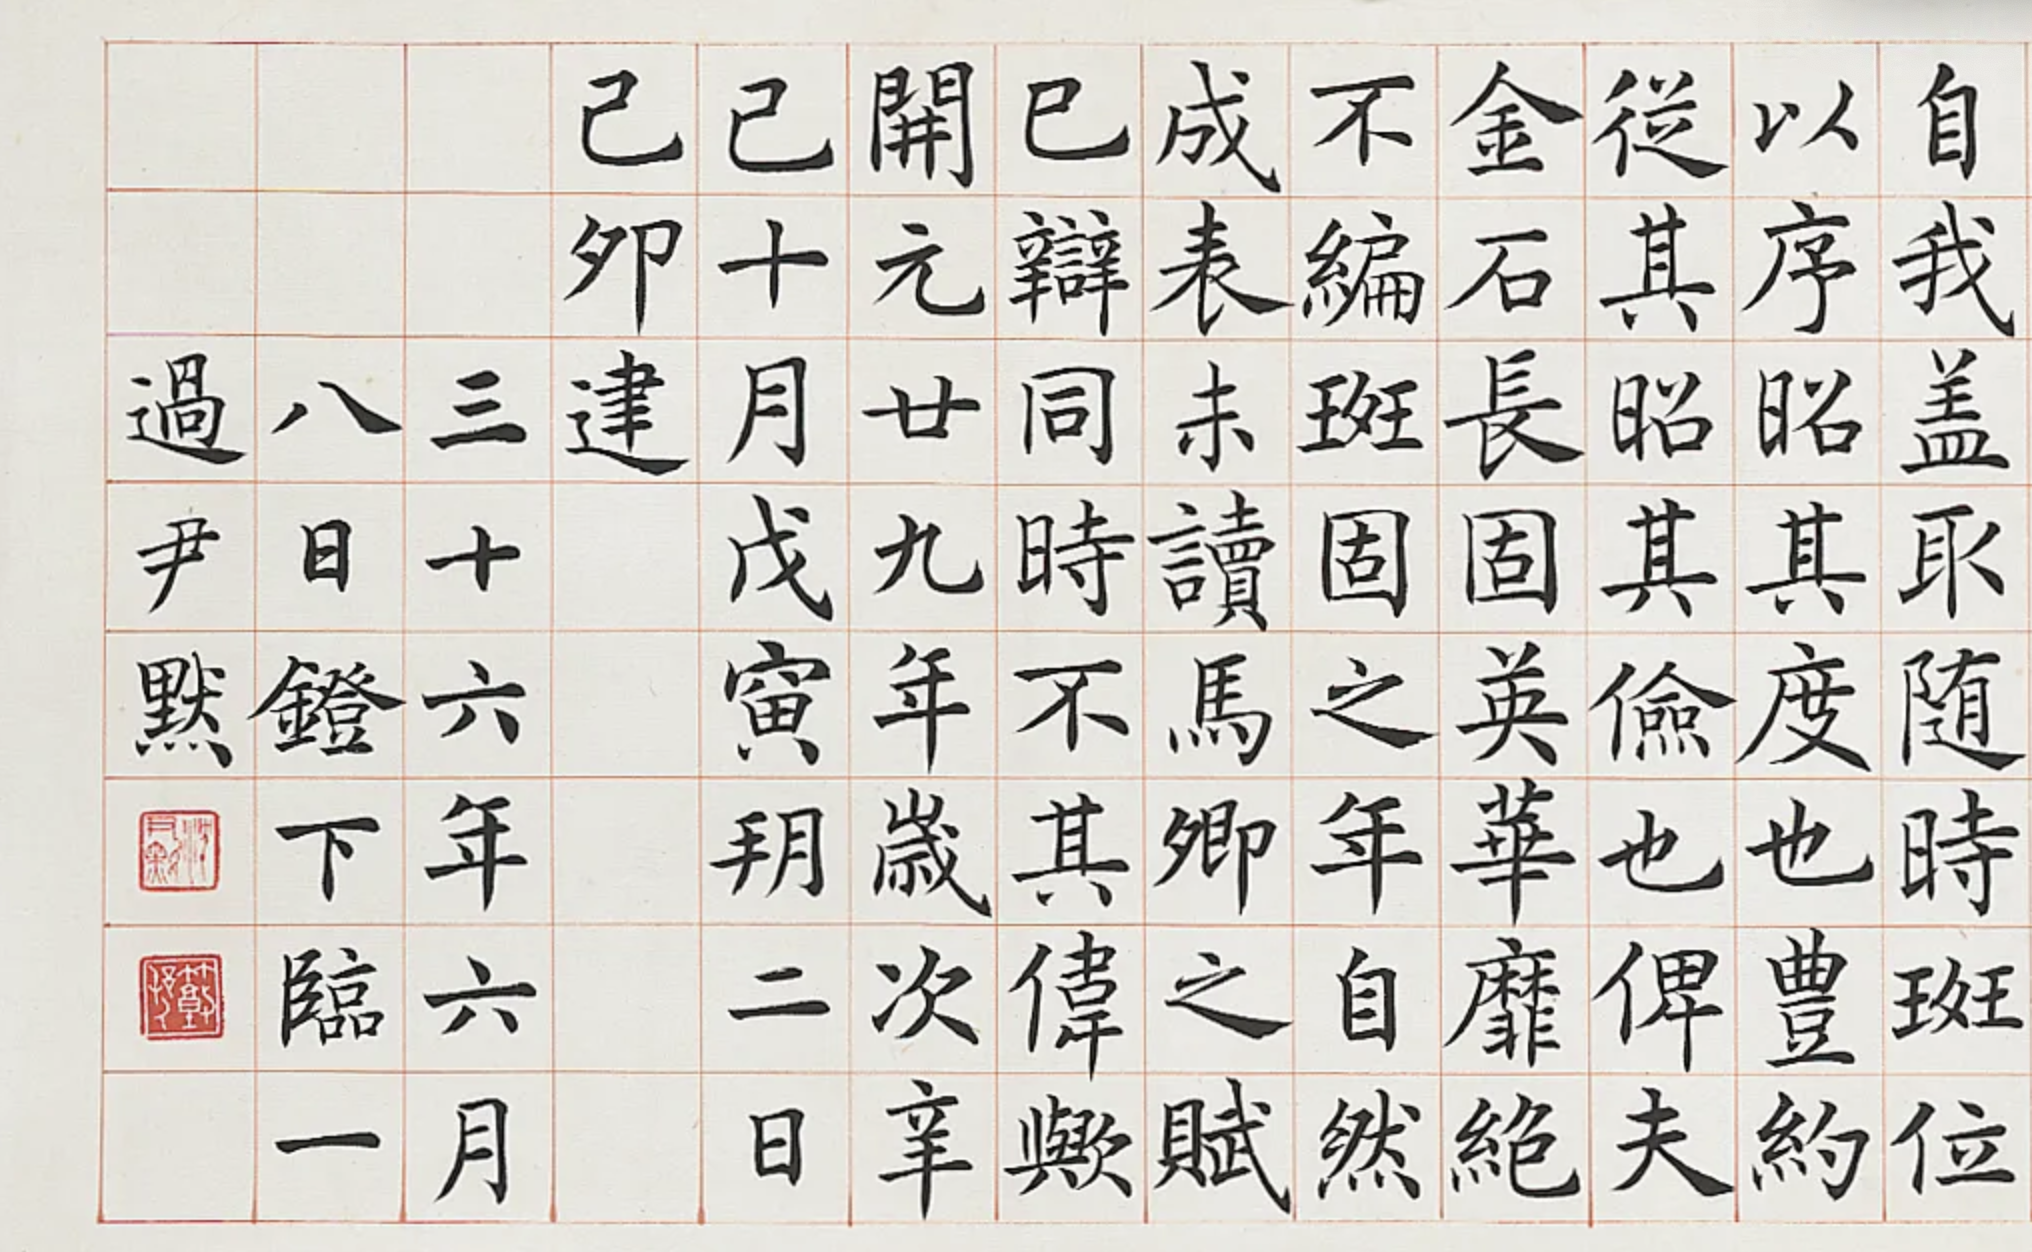 自我盖取随時班位
以序昭其度也豊約
從其昭其儉也俾夫
金石長固英華靡絶
不編班固之年自然
成表未讀馬卿之賦
已辯同時不其偉歟
開元廿九年歲次辛
已十月戊寅玥二日
己卯建
三十六年六月
八日鐙下臨一
過尹默